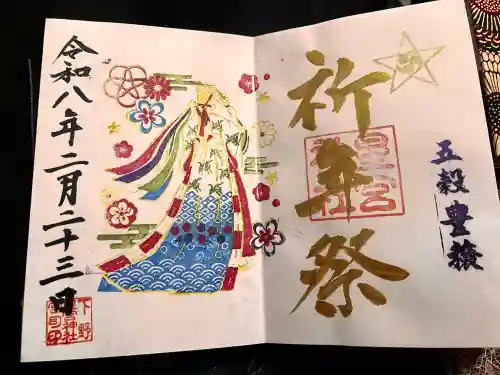 五穀豊穣
祈年祭
令和八年二月二十三日
下野
星宮神社